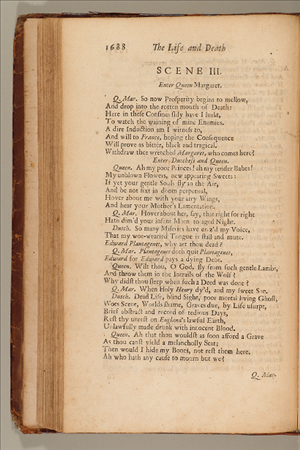 1688 The Life and Death
SCENE III.
Enter Queen Margaret.
Q. Mar. So now Prosperity begins to mellow,
And drop into the rotten mouth of Death:
Here in these Confines slily have I lurkt,
To watch the waining of mine Enemies.
A dire Induction am I witness to,
And will to France, hoping the Consequence
Will prove as bitter, black and tragical.
Withdraw thee wretched Margaret, who comes here?
Enter Dutchess and Queen.
Queen. Ah my poor Princes! ah my tender Babes!
My unblown Flowers, new appearing Sweets:
If yet your gentle Souls fly in the Air,
And be not fixt in doom perpetual,
Hover about me with your airy Wings,
And hear your Mother's Lamentation.
Q. Mar. Hover about her, say, that right for right
Hath dim'd your infant Morn to aged Night.
Dutch. So many Miseries have craz'd my Voice,
That my woe-wearied Tongue is still and mute.
Edward Plantagenet, why art thou dead?
Q. Mar. Plantagenet doth quit Plantagenet,
Edward for Edward pays a dying Debt.
Queen. Wilt thou, O God, fly from such gentle Lambs,
And throw them in the Intrails of the Wolf?
Why didst thou sleep when such a Deed was done?
Q. Mar. When Holy Henry dy'd, and my sweet Son.
Dutch. Dead Life, blind Sight, poor mortal living Ghost,
Woes Scene, Worlds shame, Graves due, by Life usurpt,
Brief abstract and record of tedious Days,
Rest thy unrest on England's lawful Earth,
Unlawfully made drunk with innocent Blood.
Queen. Ah that thou wouldst as soon afford a Grave
As thou canst yield a melancholly Seat;
Then would I hide my Bones, not rest them here.
Ah who hath any cause to mourn but we?
Q. Mar.